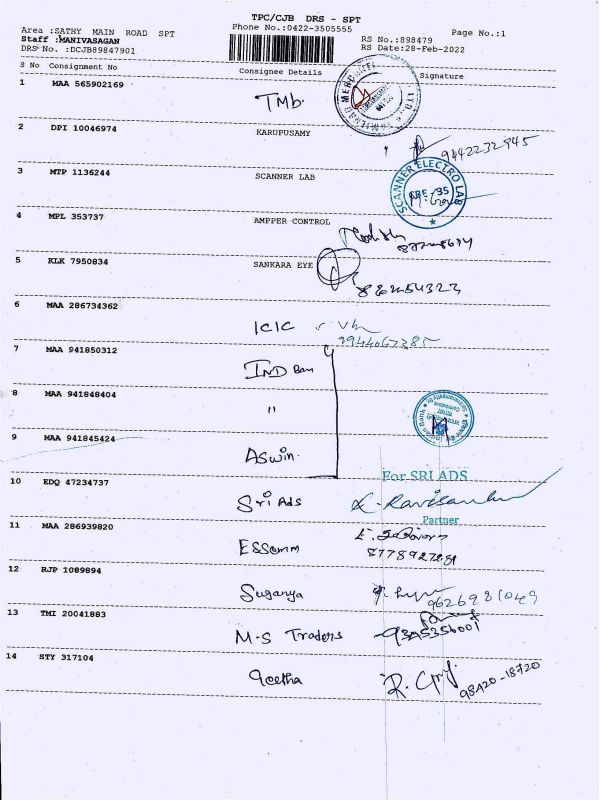 TPC/CJB DRS - SPT
Area :SATHY MAIN ROAD SPT
Phone No.:0422-3505555
Page No.:1
Staff :MANIVASAGAN
RS No.:898479
DRS No. :DCJB89847901
RS Date:28-Feb-2022
S No Consignment No Consignee Details Signature
1 MAA 565902169 TMb.
2 DPI 10046974 KARUPUSAMY
9442232945
3 MTP 1136244 SCANNER LAB
SCANNER ELECTRO LAB
4 MPL 353737 AMPPER CONTROL
5 KLK 7950834 SANKARA EYE
6 MAA 286734362 ICIC
9944067385
7 MAA 941850312 IND Ban
8 MAA 941848404 "
9 MAA 941845424 Aswin.
For SRI ADS
10 EDQ 47234737 Sri Ads
Partner
11 MAA 286939820 ESSemm
12 RJP 1089894 Suganya
9626981049
13 TMI 20041883 M.S Traders
9345356001
14 STY 317104 Geetha
98420-18720